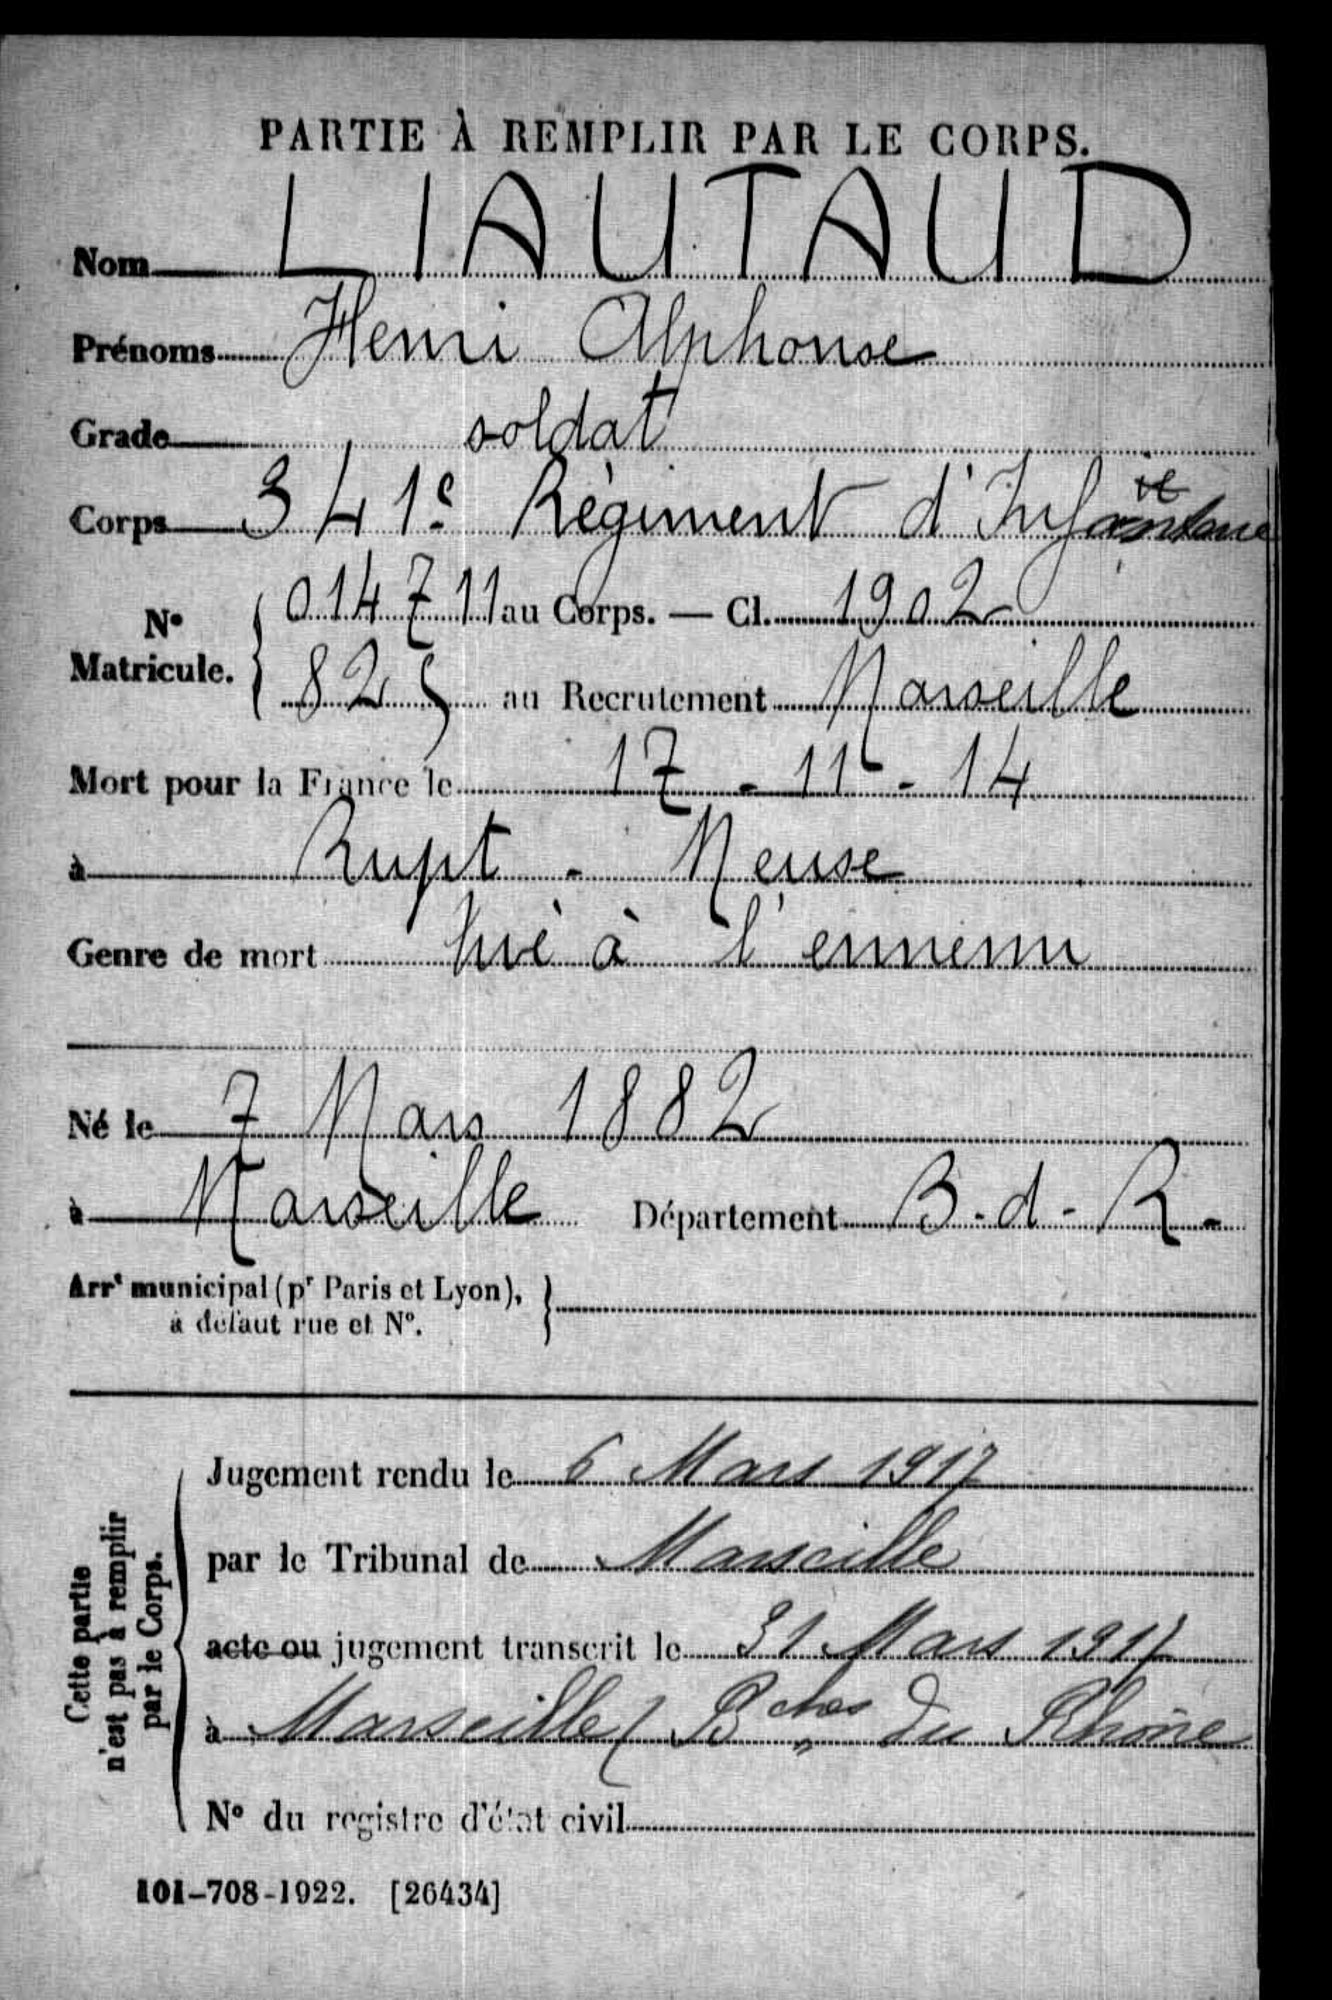 PARTIE À REMPLIR PAR LE CORPS.
Nom LIAUTAUD
Prénoms Henri Alphonse
Grade soldat
Corps 341e Régiment d'Infanterie
No Matricule. { 014711 au Corps. — Cl. 1902
825 au Recrutement Marseille
Mort pour la France le 17 - 11 - 14
à Rupt - Meuse
Genre de mort tué à l'ennemi
Né le 7 Mars 1882
à Marseille Département B-d-R-
Arrt municipal (pr Paris et Lyon), }
à défaut rue et No.
Cette partie
n'est pas à remplir
par le Corps.
Jugement rendu le 6 Mars 1917
par le Tribunal de Marseille
acte ou jugement transcrit le 31 Mars 1917
à Marseille (Bches du Rhône
No du registre d'état civil
101-708-1922. [26434]